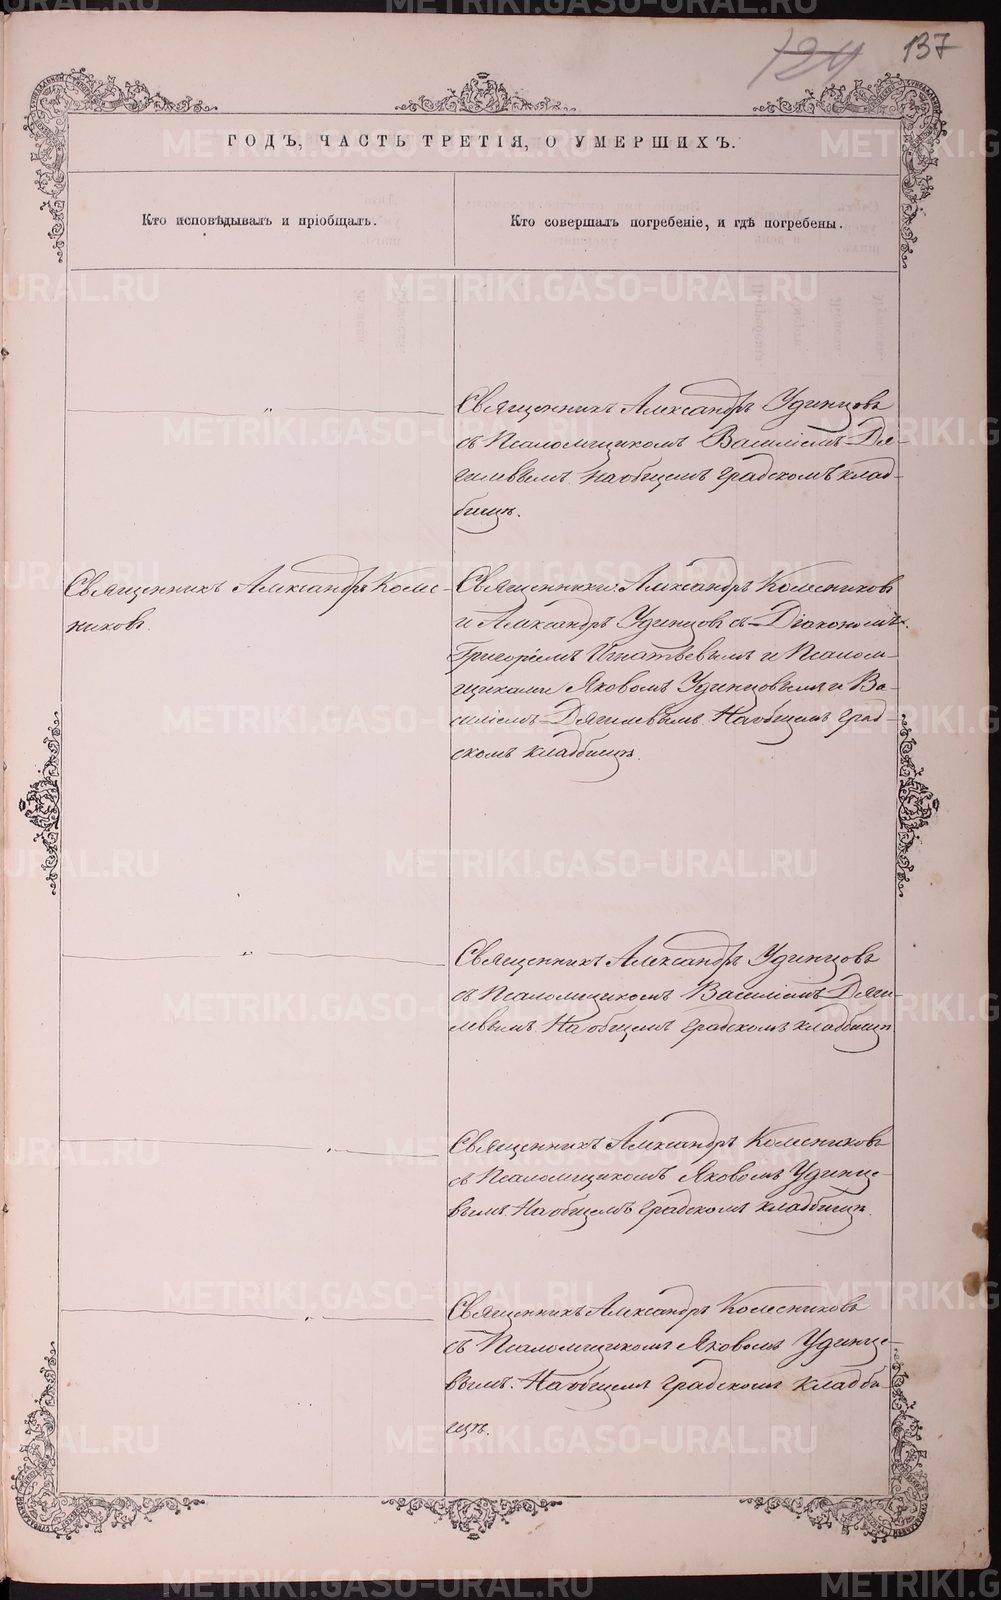 124 137
ГОДЪ, ЧАСТЬ ТРЕТІЯ, О УМЕРШИХЪ.
Кто исповѣдывалъ и пріобщалъ.
Кто совершалъ погребеніе, и гдѣ погребены.
"
Священникъ Александръ Удинцовъ
съ Псаломщикомъ Василіемъ Дя-
гилевымъ на общемъ градскомъ клад-
бищѣ.
Священникъ Александръ Колес-
никовъ.
Священники: Александръ Колесниковъ
и Александръ Удинцовъ съ Діакономъ
Григоріемъ Игнатьевымъ и Псалом-
щиками Яковомъ Удинцовымъ и Ва-
силіемъ Дягилевымъ. На общемъ град-
скомъ кладбищѣ.
"
Священникъ Александръ Удинцовъ
съ Псаломщикомъ Василіемъ Дяги-
левымъ. На общемъ градскомъ кладбищѣ
"
Священникъ Александръ Колесниковъ
съ Псаломщикомъ Яковомъ Удинце-
вымъ. На общемъ градскомъ кладбищѣ.
"
Священникъ Александръ Колесниковъ
съ Псаломщикомъ Яковомъ Удинце-
вымъ. На общемъ градскомъ кладби-
щѣ.
METRIKI.GASO-URAL.RU